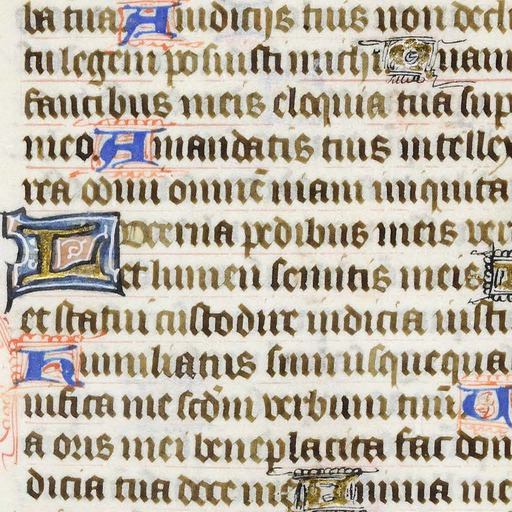 ba tua A iudicijs tuis non decli
tu legem posuisti michi Quam
faucibus meis eloquia tua sup
meo A mandatis tuis intellex
rea odiui omnẽ uiam iniquita
Lucerna pedibus meis uer
et lumen semitis meis
et statui custodire iudicia iusti
Humiliatus sum usquequa
uifica me scdm̃ uerbum tuũ
a oris mei beneplacita fac dom
dicia tua doce me Anima me